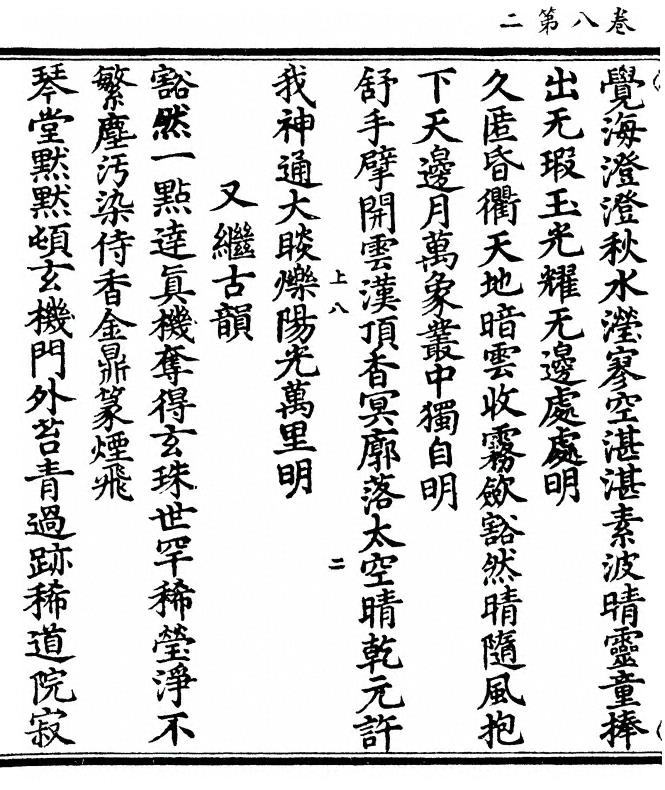 卷八第二
覺海澄澄秋水瀅寥空湛湛素波晴靈童捧
出无瑕玉光耀无邊處處明
久匿昏衢天地暗雲收霧歛豁然晴隨風抱
下天邊月萬象叢中獨自明
舒手擘開雲漢頂香冥廓落太空晴乾元許
上八 二
我神通大睒爍陽光萬里明
又繼古韻
豁然一點逹真機奪得玄珠世罕稀瑩淨不
繁塵汚染侍香金鼎篆煙飛
琴堂默默頓玄機門外苔青過跡稀道院寂